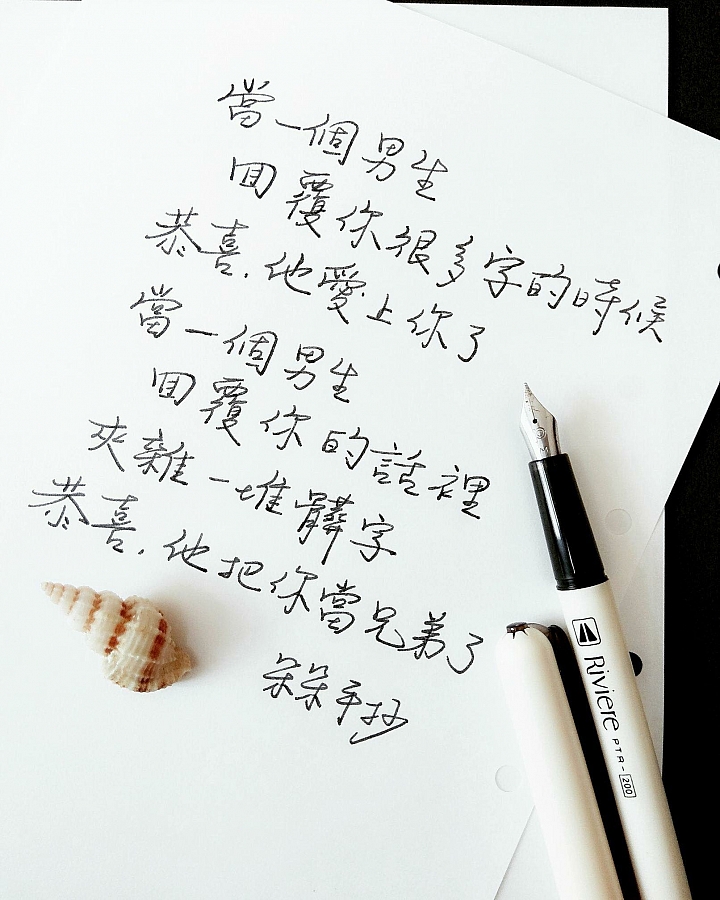 當一個男生
回覆你很多字的時候
恭喜.他愛上你了
當一個男生
回覆你的話裡
夾雜一堆髒字
恭喜.他把你當兄弟了
朵朵手抄
Riviere PTR-200